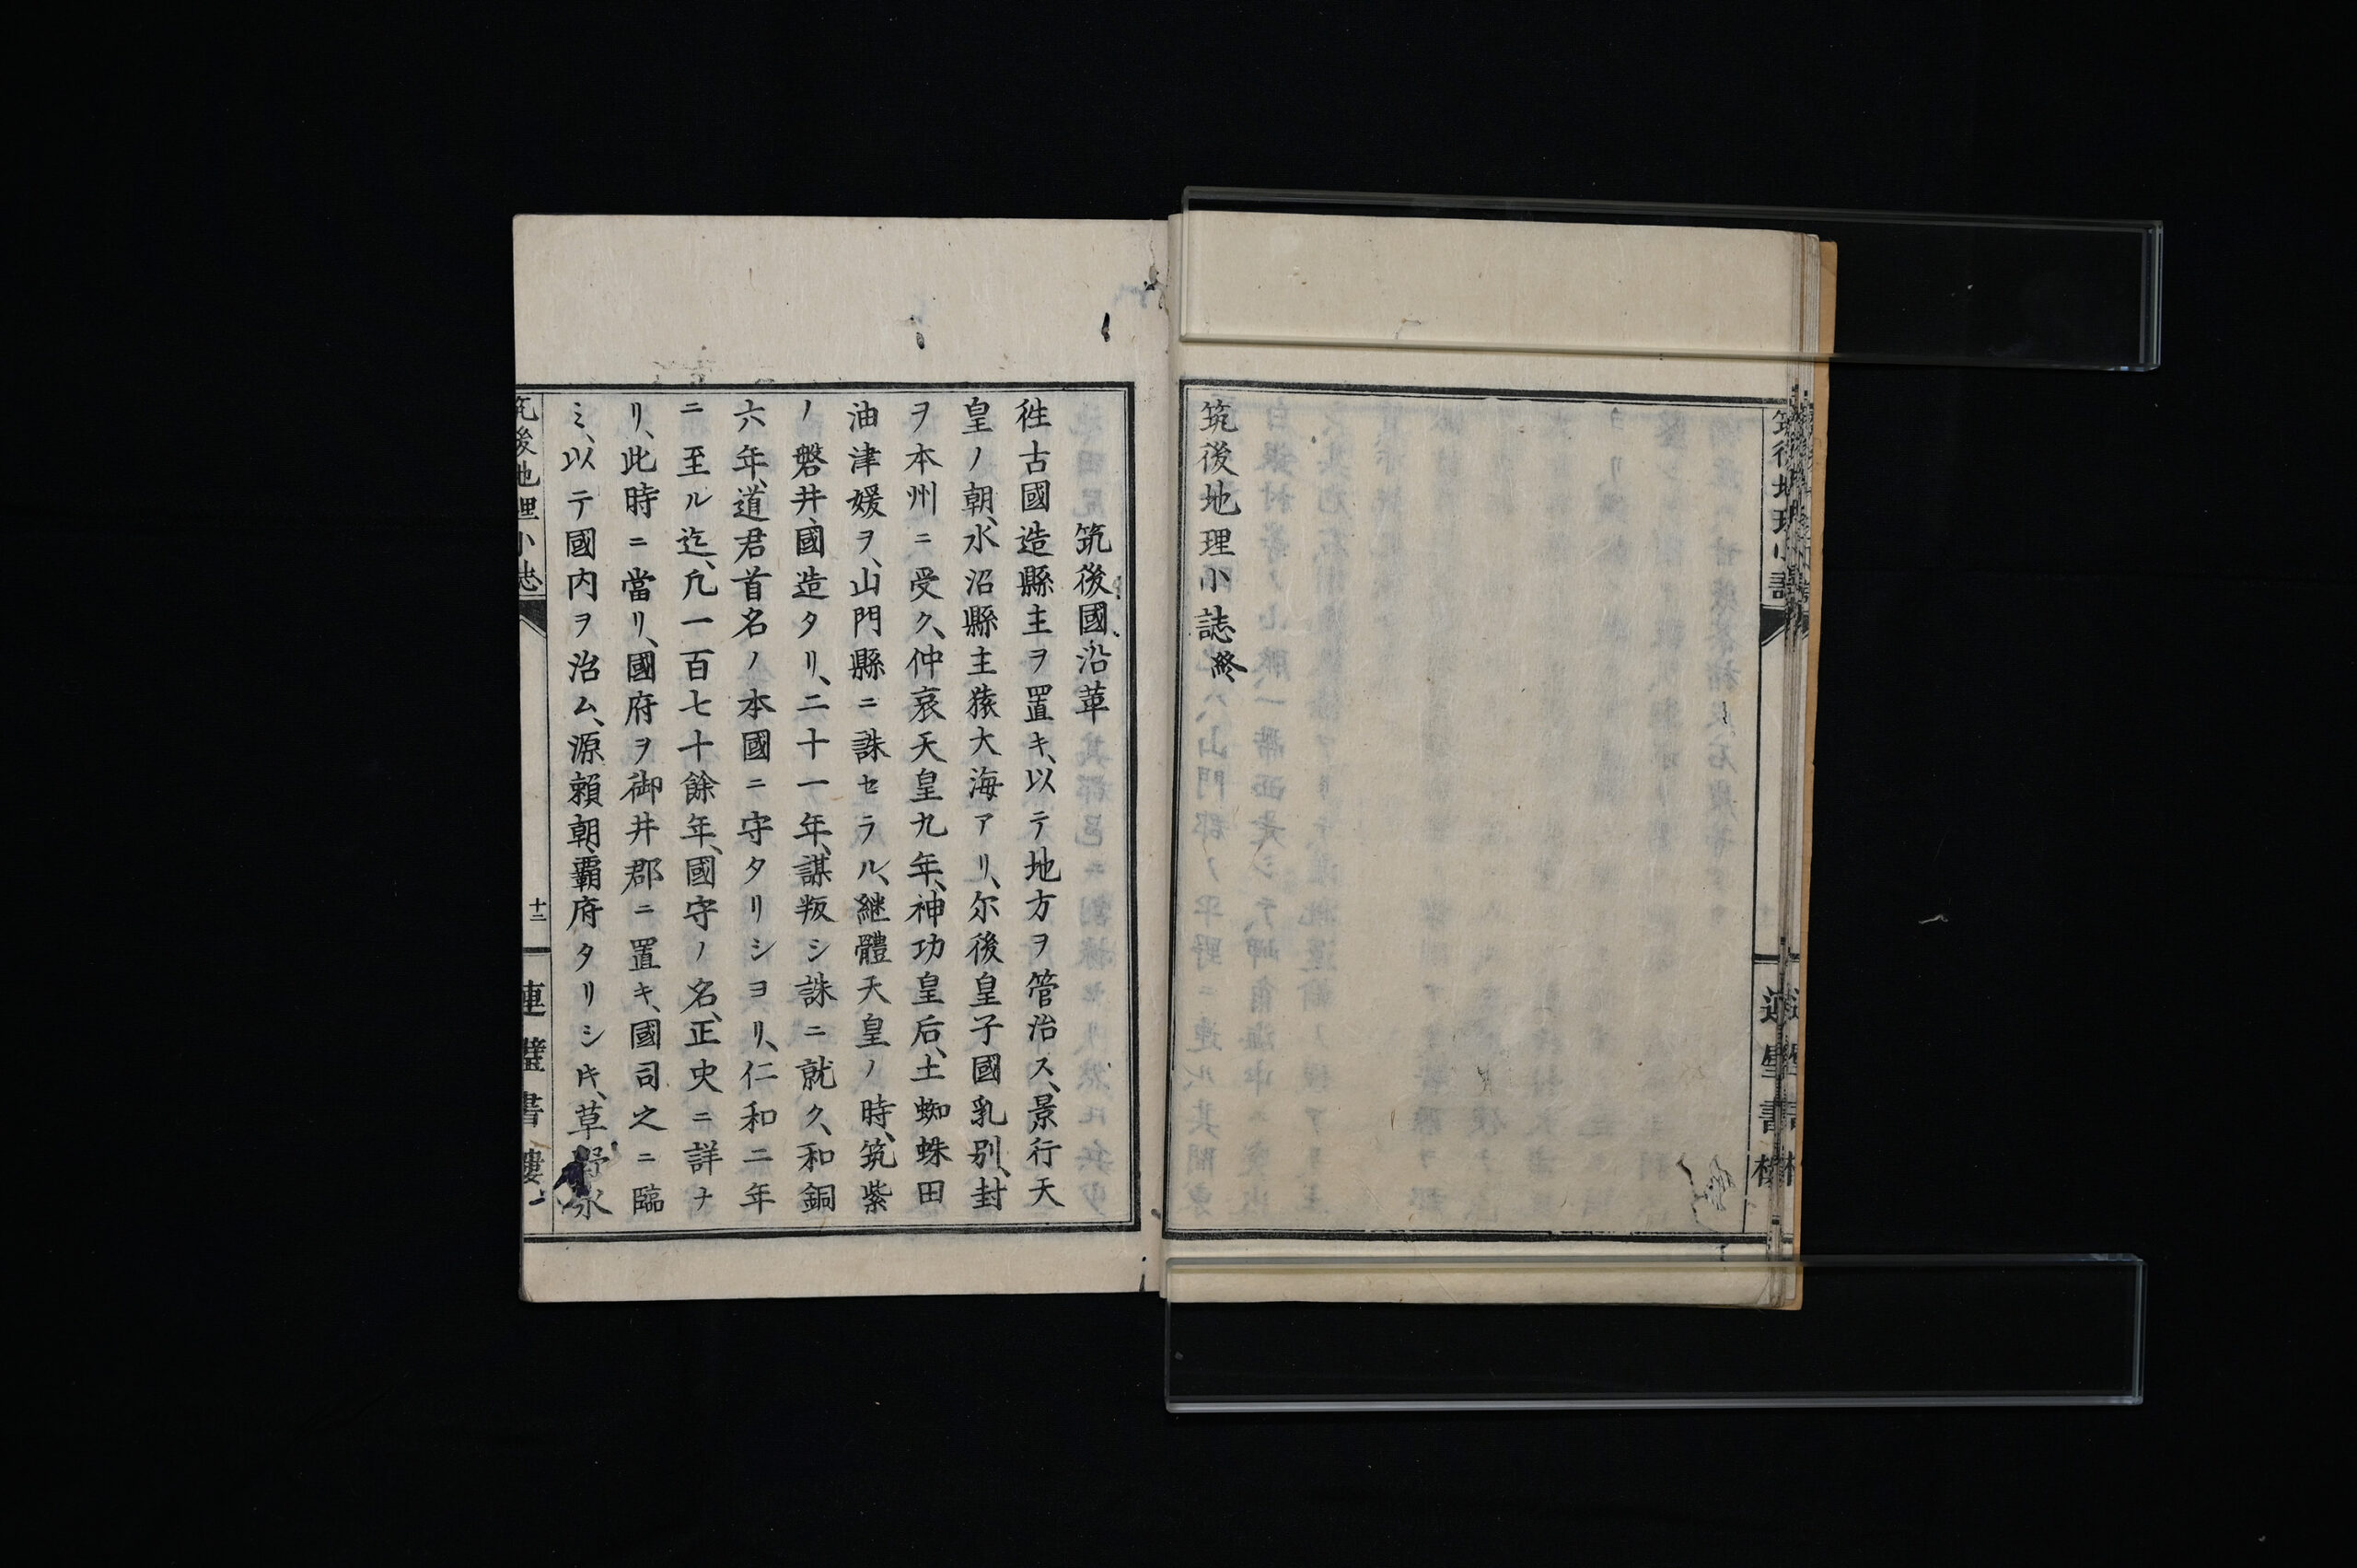 筑後地理小誌終
筑後國沿革
徃古國造縣主ヲ置キ、以テ地方ヲ管治ス、景行天
皇ノ朝、水沼縣主猿大海アリ、尔後皇子國乳別、封
ヲ本州ニ受ク、仲哀天皇九年、神功皇后、土蜘蛛田
油津媛ヲ、山門縣ニ誅セラル、継體天皇ノ時、筑紫
ノ磐井、國造タリ、二十一年、謀叛シ誅ニ就ク、和銅
六年、道君首名ノ本國ニ守タリシヨリ、仁和二年
ニ至ル迄、凢一百七十餘年、國守ノ名、正史ニ詳ナ
リ、此時ニ當リ、國府ヲ御井郡ニ置キ、國司之ニ臨
ミ、以テ國内ヲ治ム、源賴朝、霸府タリシ𪜈、草野永
筑後地理小志
十二
連璧書樓